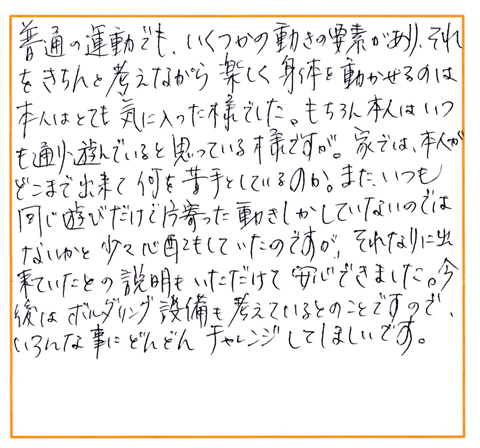 普通の運動でも、いくつかの動きの要素があり、それ
をきちんと考えながら楽しく身体を動かせるのは
本人はとても気に入った様でした。もちろん本人はいつ
も通り遊んでいると思っている様ですが。家では、本人が
どこまで出来て何を苦手としているのか。また、いつも
同じ遊びだけで片寄った動きしかしていないのでは
ないかと少々心配もしていたのですが、それなりに出
来ていたとの説明もいただけて安心できました。今
後はボルダリング設備も考えているとのことですので、
いろんな事にどんどんチャレンジしてほしいです。